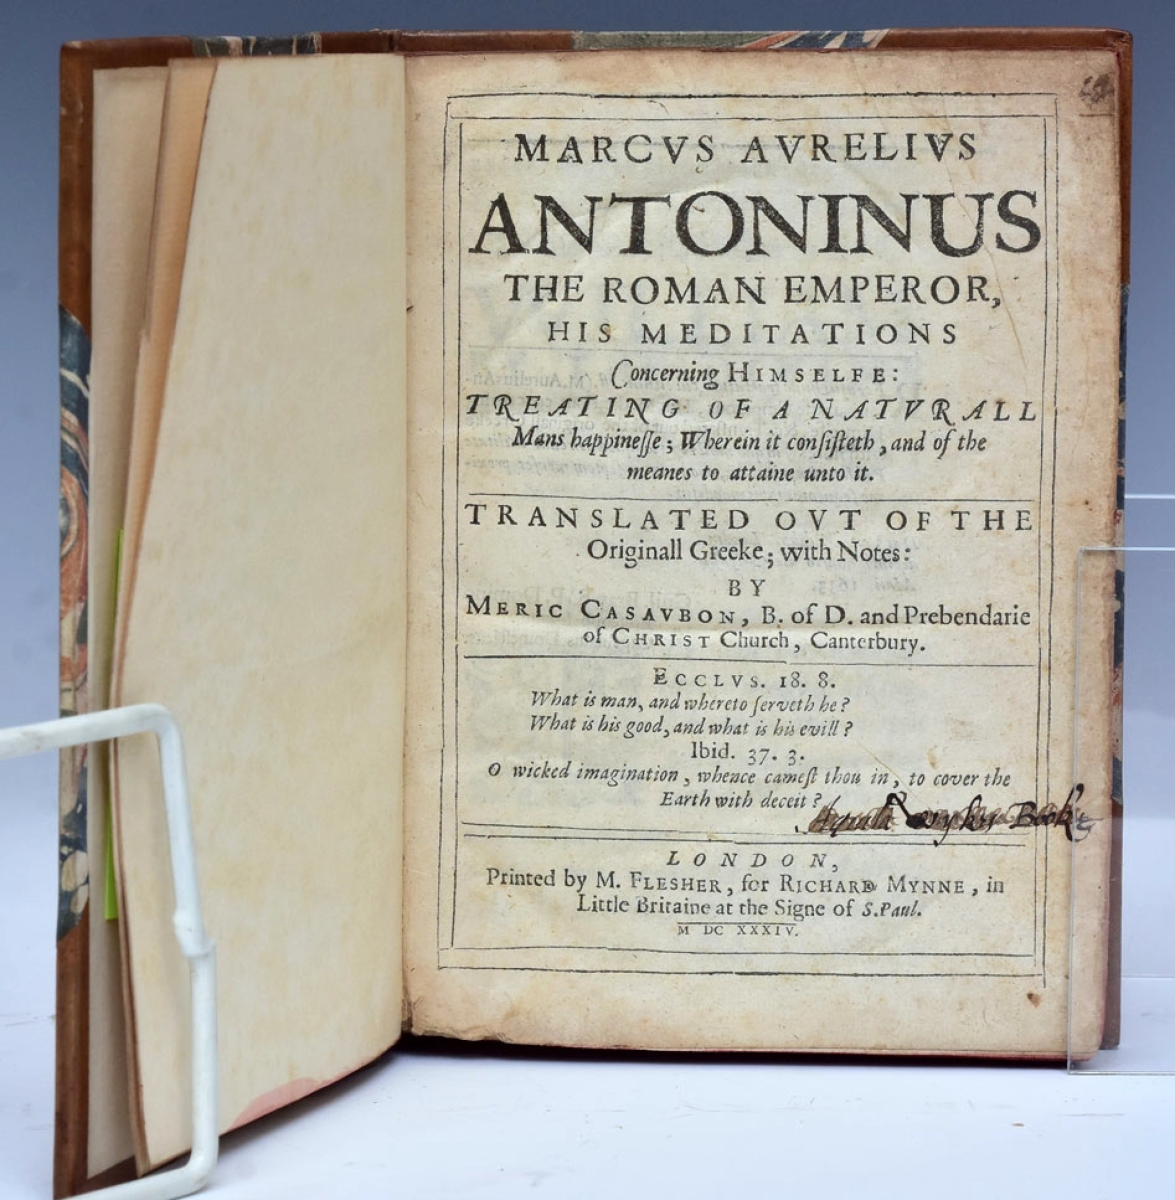 MARCVS AVRELIVS
ANTONINUS
THE ROMAN EMPEROR,
HIS MEDITATIONS
Concerning HIMSELFE:
TREATING OF A NATVRALL
Mans happinesse; Wherein it consisteth, and of the
meanes to attaine unto it.
TRANSLATED OVT OF THE
Originall Greeke; with Notes:
BY
MERIC CASAVBON, B. of D. and Prebendarie
of CHRIST Church, Canterbury.
ECCLVS. 18. 8.
What is man, and whereto serveth he?
What is his good, and what is his evill?
Ibid. 37. 3.
O wicked imagination, whence camest thou in, to cover the
Earth with deceit?
Book
LONDON,
Printed by M. FLESHER, for RICHARD MYNNE, in
Little Britaine at the Signe of S. Paul.
M DC XXXIV.